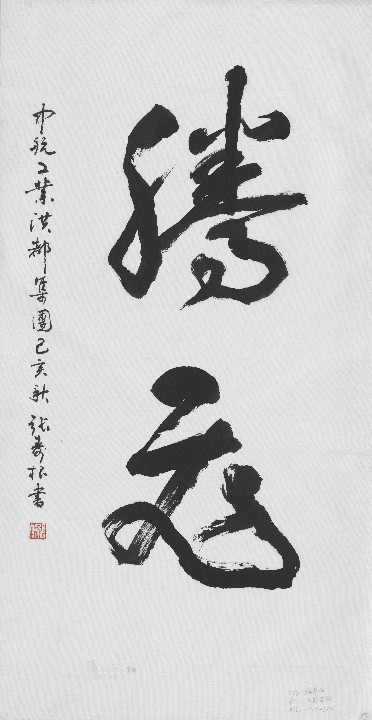 騰飛
中航工業洪都集團己亥秋張壽根書